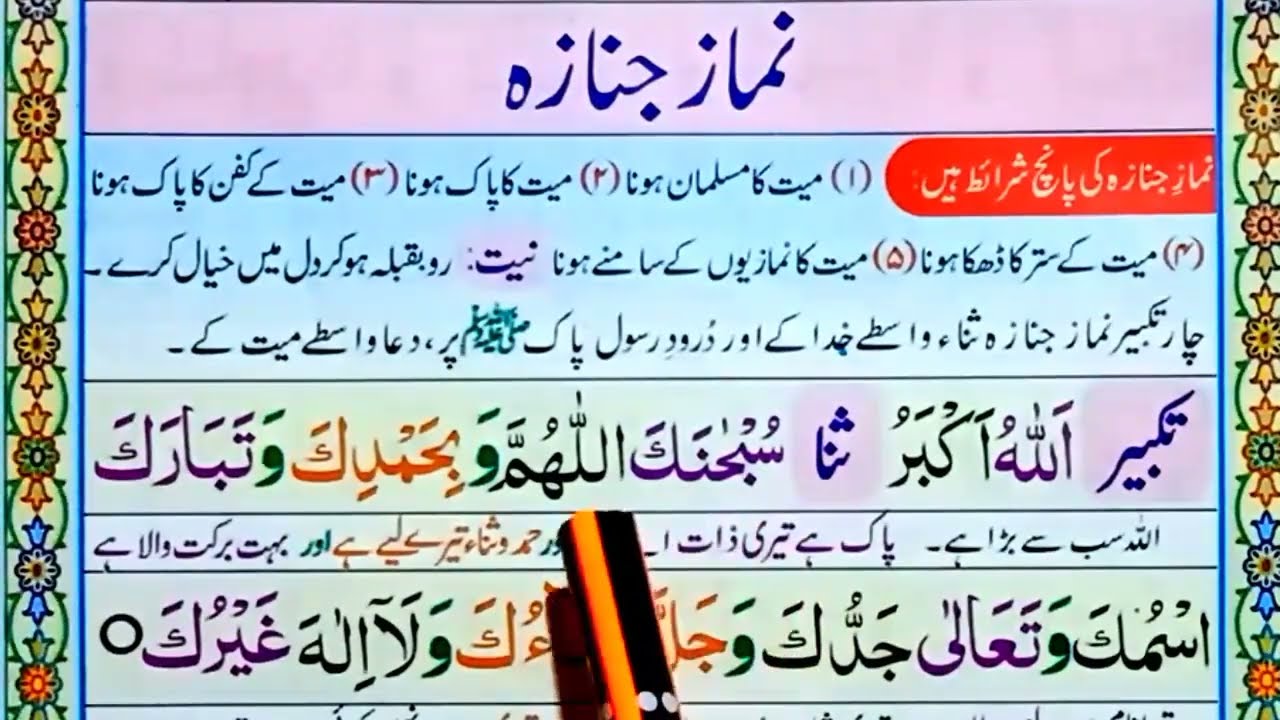 نماز جنازہ
نمازِ جنازہ کی پانچ شرائط ہیں: (۱) میت کا مسلمان ہونا (۲) میت کا پاک ہونا (۳) میت کے کفن کا پاک ہونا
(۴) میت کے ستر کا ڈھکا ہونا (۵) میت کا نمازیوں کے سامنے ہونا نیت: روبقبلہ ہو کر دل میں خیال کرے ۔
چار تکبیر نماز جنازہ ثناء واسطے خدا کے اور دُرودِ رسول پاک ﷺ پر، دعا واسطے میت کے ۔
تکبیر اَللّٰهُ اَكْبَرُ ثنا سُبْحٰنَكَ اللّٰهُمَّ وَ بِحَمْدِكَ وَ تَبَارَكَ
اللہ سب سے بڑا ہے ۔ پاک ہے تیری ذات حمد و ثناء تیرے لیے ہے اور بہت برکت والا ہے
اسْمُكَ وَ تَعَالٰى جَدُّكَ وَ جَلَّ وَ لَآ اِلٰهَ غَيْرُكَ ○